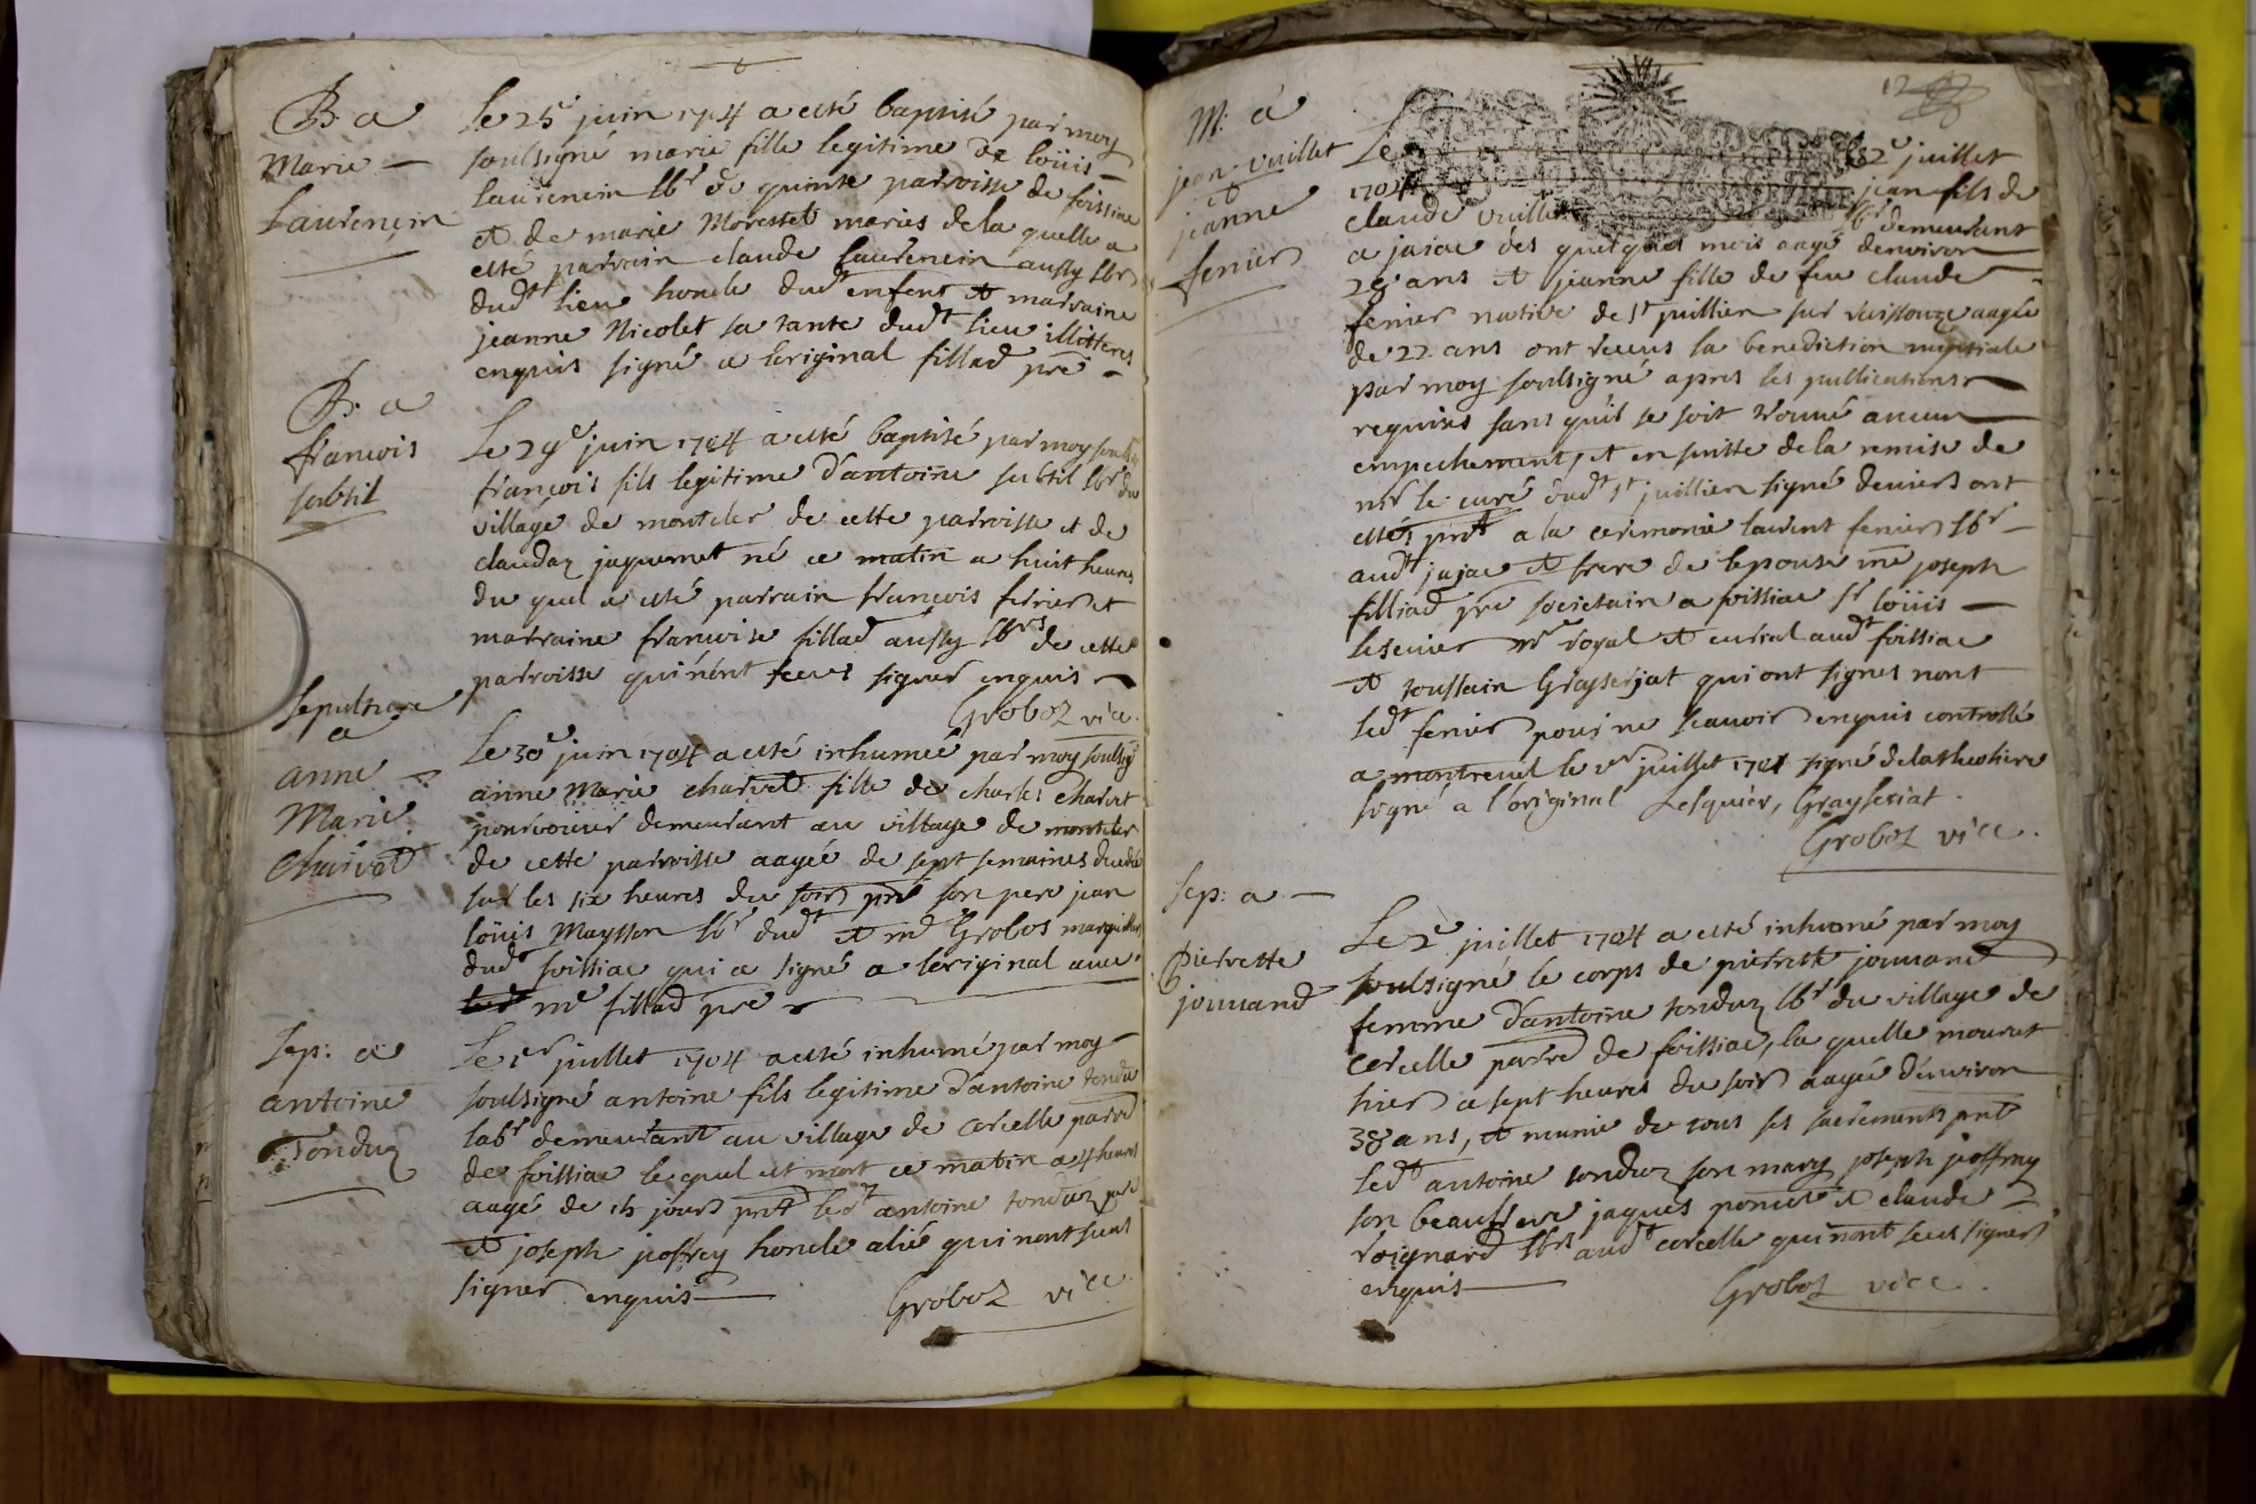 B. a
Marie —
Laurencin
Le 25e juin 1704 a esté baptisé par moy
soulsigné marie fille legitime de loüis —
laurencin lbr de quinte parroisse de foissiac
et de marie Moressel mariés de la quelle a
esté parrain claude laurencin aussy lbr
dudt lieu honcle dudt enfent et marraine
jeanne Nicolet sa tante dudt lieu illitteres
enquis signé a l'original fillad pre —
B. a
francois
subtil
Le 29e juin 1704 a esté baptisé par moy soulsig
francois fils legitime d'antoine subtil lbr du
village de montcler de cette parroisse et de
claudaz jaquemet né ce matin a huit heures
du quel a esté parrain francois ferrier et
marraine francoise fillad aussy lbrs de cette
parroisse qui n'ont sceus signer enquis —
Groboz vice.
sepulture
a
anne —
Marie
Charvet
Le 30e juin 1704 a esté inhumeé par moy soulsig
anne Marie charvet fille de charles charvet
demeurant au village de montcler
de cette parroisse aagée de sept semaines decedée
sur les six heures du soir pnt son pere jean
loüis Maysson lbr dudt et me Grobos marguillier
dudt foissiac qui a signé a l'original avec
me fillad pre
Sep: a
antoine
Tonduz
Le 1er juillet 1704 a esté inhumé par moy —
soulsigné antoine fils legitime d'antoine tonduz
labr demeurant au village de corcelle parre
de foissiac le quel est mort ce matin a 4 heures
aagé de 15 jours pnt ledt antoine tonduz pere
et joseph joffrey honcle alié qui nont sceus
signer enquis —
Groboz vice
12
M: a
jean vuillet
et
jeanne
fenier
Le 2e juillet
1704 jean fils de
claude vuillet lbr demeurant
a jajac des quelques mois aagé denviron
28 ans et jeanne fille de feu claude
fenier native de st juillien sur reissouze aagée
de 22 ans ont receus la benediction nuptiale
par moy soulsigné apres les publications
requises sans quil se soit trouué aucun
empechement, et en suitte de la remise de
mr le curé dudt st juillien signé deniers ont
estés pnt a la ceremonie laurent fenier lbr —
audt jajac et frere de lepouse me joseph
filliad pre societain a foissiac sr loüis —
lescuier nre royal et curial audt foissiac
et toussain Grayserjat qui ont signés nont
ledt fenier pour ne scauoir enquis controllé
a montreuel le 1er juillet 1704 signé delatheoliere
signé a l'original Lesquier, Grayseriat.
Groboz vice.
Sep: a —
Pierrette
jouuand
Le 2e juillet 1704 a esté inhumé par moy
soulsigné le corps de pierrette jouuand
femme d'antoine tonduz lbr du village de
corcelle parre de foissiac, la quelle mourut
hier a sept heures du soir aagée d'enuiron
38 ans, et munie de tous ses sacrements pnt
ledt antoine tonduz son mary joseph joffray
son beaufrere jaques poncet et claude
roignard lbrs audt corcelle qui nont sceus signer
enquis —
Groboz vice.